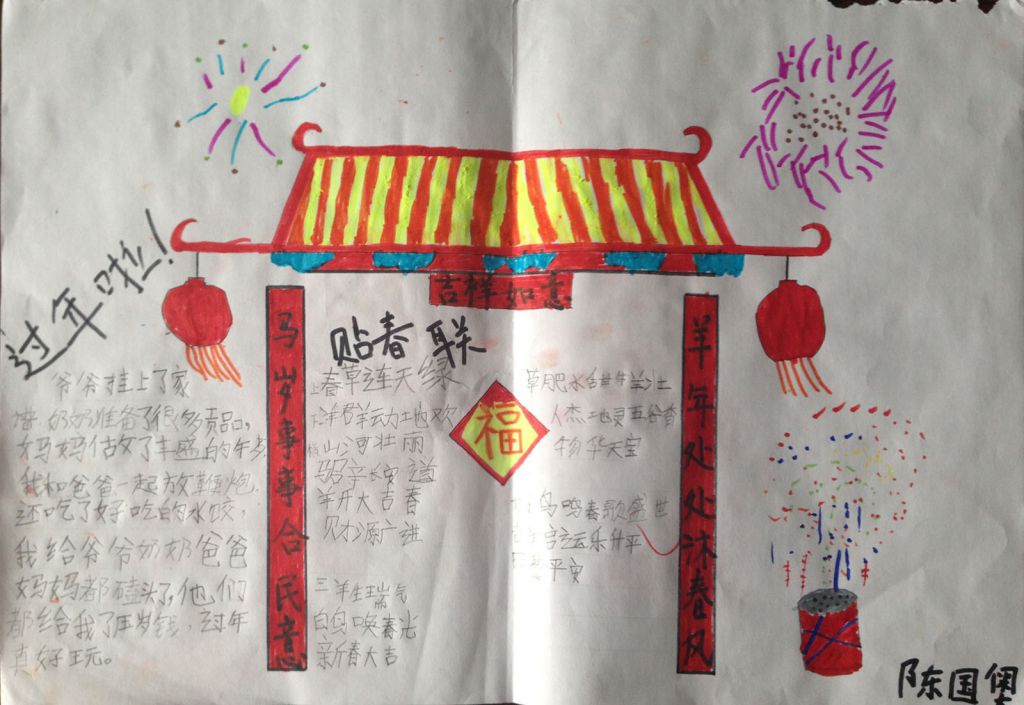 过年啦！
吉祥如意
马岁事事合民意
羊年处处沐春风
福
贴春联
爷爷挂上了家
谱,奶奶准备了很多贡品,
妈妈做了丰盛的年
我和爸爸一起放鞭炮,
还吃了好吃的水饺,
我给爷爷奶奶爸爸
妈妈都磕头了,他们
都给我了压岁钱,过年
真好玩。
上春草连天绿
下羊群动地欢
山河壮丽
长安道
羊开大吉春
财源广进
三羊生瑞气
百鸟唤春光
新春大吉
草肥水
人杰地灵五谷香
物华天宝
鸟鸣春歌盛世
乐升平
平安
陈国堡